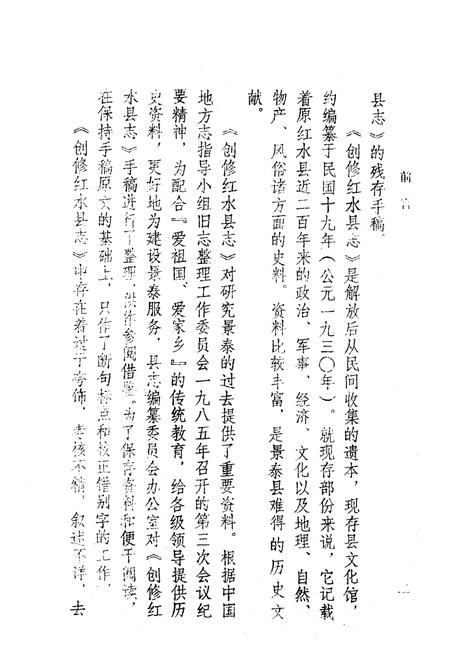 前言
县志》的残存手稿。
《创修红水县志》是解放后从民间收集的遗本，现存县文化馆，
约编纂于民国十九年（公元一九三〇年）。就现存部份来说，它记载
着原红水县近二百年来的政治、军事、经济、文化以及地理、自然、
物产、风俗诸方面的史料。资料比较丰富，是景泰县难得的历史文
献。
《创修红水县志》对研究景泰的过去提供了重要资料。根据中国
地方志指导小组旧志整理工作委员会一九八五年召开的第三次会议纪
要精神，为配合『爱祖国、爱家乡』的传统教育，给各级领导提供历
史资料，更好地为建设景泰服务，县志编纂委员会办公室对《创修红
水县志》手稿进行了整理，供作参阅借鉴。为了保存资料和便于阅读，
在保持手稿原文的基础上，只作了断句标点和校正错别字的工作。
《创修红水县志》中存在着过于夸饰，考核不精，叙述不详，去